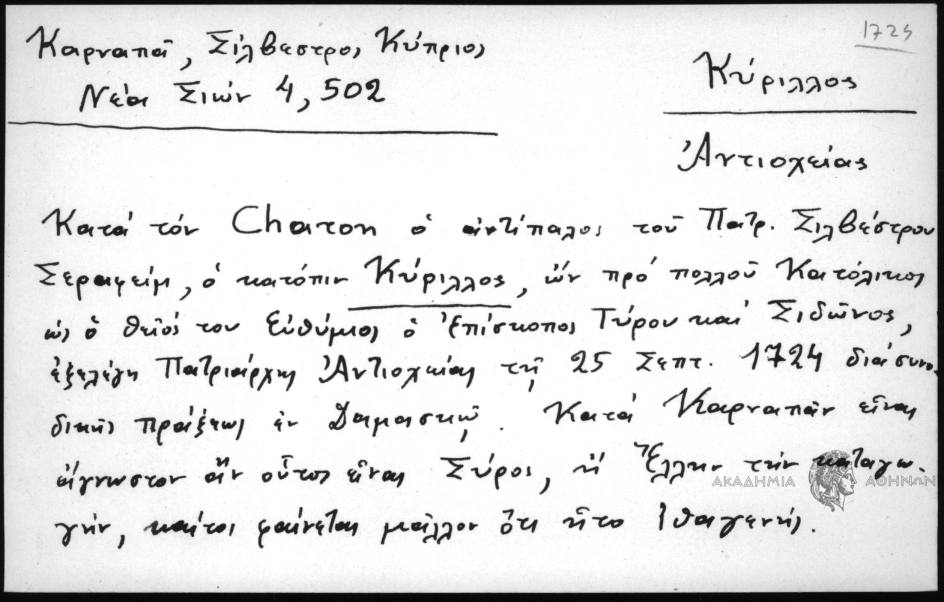 1724
Καρναπᾶ, Σίλβεστρος Κύπριος
Νέα Σιών 4, 502
Κύριλλος
Ἀντιοχείας
Κατά τόν Charon ὁ ἀντίπαλος τοῦ Πατρ. Σιλβέστρου
Σεραφείμ, ὁ κατόπιν Κύριλλος, ὤν πρό πολλοῦ Κατόλικος
ὡς ὁ θεῖός του Εὐθύμιος ὁ Ἐπίσκοπος Τύρου καί Σιδῶνος,
ἐξελέγη Πατριάρχης Ἀντιοχείας τῇ 25 Σεπτ. 1724 διά συνο-
δικῆς πράξεως ἐν Δαμασκῷ. Κατά Καρναπᾶν εἶναι
ἄγνωστον ἄν οὗτος εἶναι Σύρος, ἤ Ἕλλην τήν καταγω-
γήν, καίτοι φαίνεται μᾶλλον ὅτι ἦτο ἰθαγενής.
ΑΚΑΔΗΜΙΑ ΑΘΗΝΩΝ